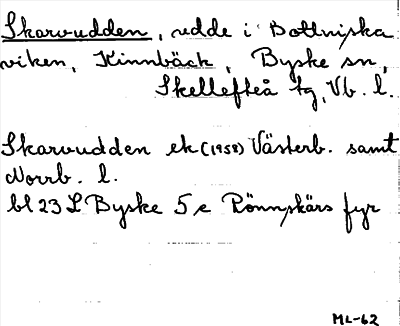 Skarvudden, udde i Bottniska
viken, Kinnbäck, Byske sn,
Skellefteå tg, Vb. l.
Skarvudden ek (1958) Västerb. samt
Norrb. l.
bl 23 L Byske 5 e Rönnskärs fyr
ML-62